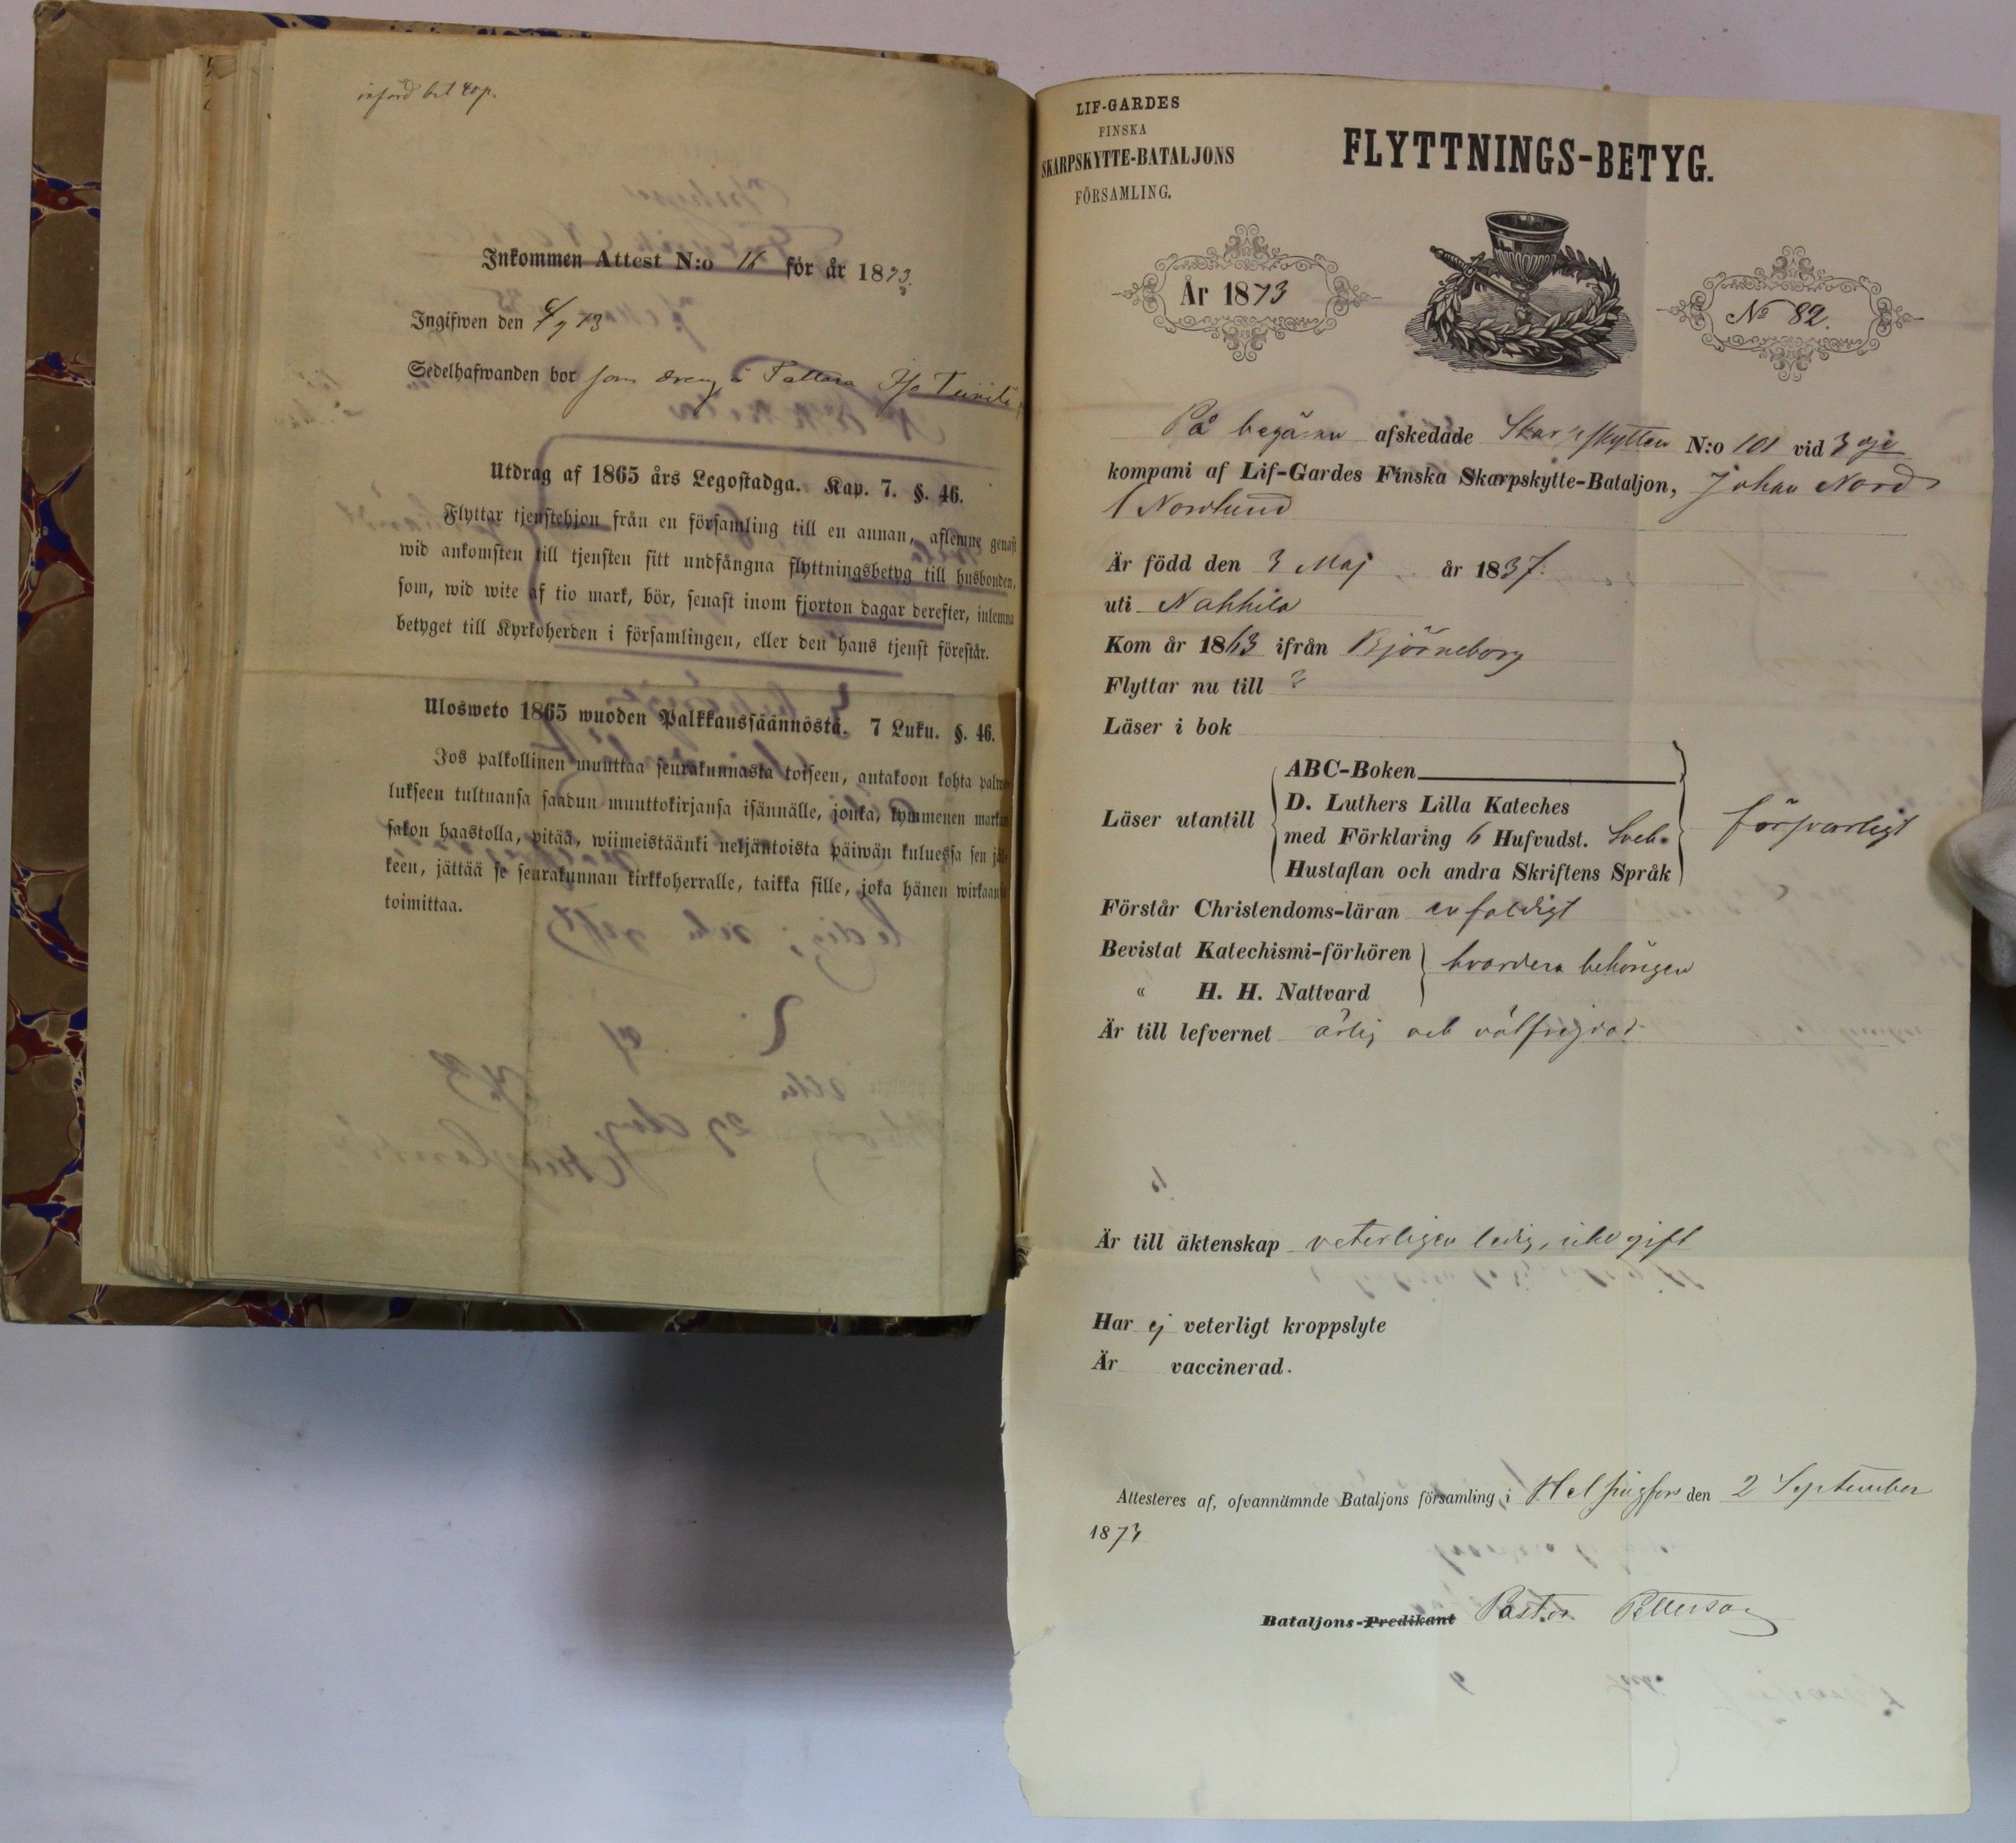 införd bet 40 p.
Inkommen Attest N:o 16 för år 1873.
Ingifwen den 4/9 73
Sedelhafwanden bor som dreng å Tattara
Utdrag af 1865 års Legostadga. Kap. 7. §. 46.
Flyttar tjenstehjon från en församling till en annan, aflemne genast
wid ankomsten till tjensten sitt undfångna flyttningsbetyg till husbonden,
som, wid wite af tio mark, bör, senast inom fjorton dagar derefter, inlemna
betyget till Kyrkoherden i församlingen, eller den hans tjenst förestår.
Ulosweto 1865 wuoden Palkkaussäännöstä. 7 Luku. §. 46.
Jos palkollinen muuttaa seurakunnasta toiseen, antakoon kohta palwe
lukseen tultuansa saadun muuttokirjansa isännälle, jonka, kymmenen markan
sakon haastolla, pitää, wiimeistäänki neljäntoista päiwän kuluessa sen jäl
keen, jättää se seurakunnan kirkkoherralle, taikka sille, joka hänen wirkaansa
toimittaa.
LIF-GARDES
FINSKA
SKARPSKYTTE-BATALJONS
FÖRSAMLING.
FLYTTNINGS-BETYG.
År 1873
No 82.
På begäran afskedade Skarpskytten N:o 101 vid 3dje
kompani af Lif-Gardes Finska Skarpskytte-Bataljon, Johan Nord
/Nordlund
Är född den 3 Maj år 1837.
uti Nakkila
Kom år 1863 ifrån Björneborg
Flyttar nu till ?
Läser i bok
ABC-Boken
Läser utantill D. Luthers Lilla Kateches
med Förklaring 6 Hufvudst. Sveb. försvarligt
Hustaflan och andra Skriftens Språk
Förstår Christendoms-läran enfaldigt
Bevistat Katechismi-förhören hvardera behörigen
« H. H. Nattvard
Är till lefvernet ärlig och välfrejdad
Är till äktenskap veterligen ledig, icke gift
Har ej veterligt kroppslyte
Är vaccinerad.
Attesteres af, ofvannämnde Bataljons församling, i Helsingfors den 2 September
1873
Bataljons-Predikant Pastor Petterson